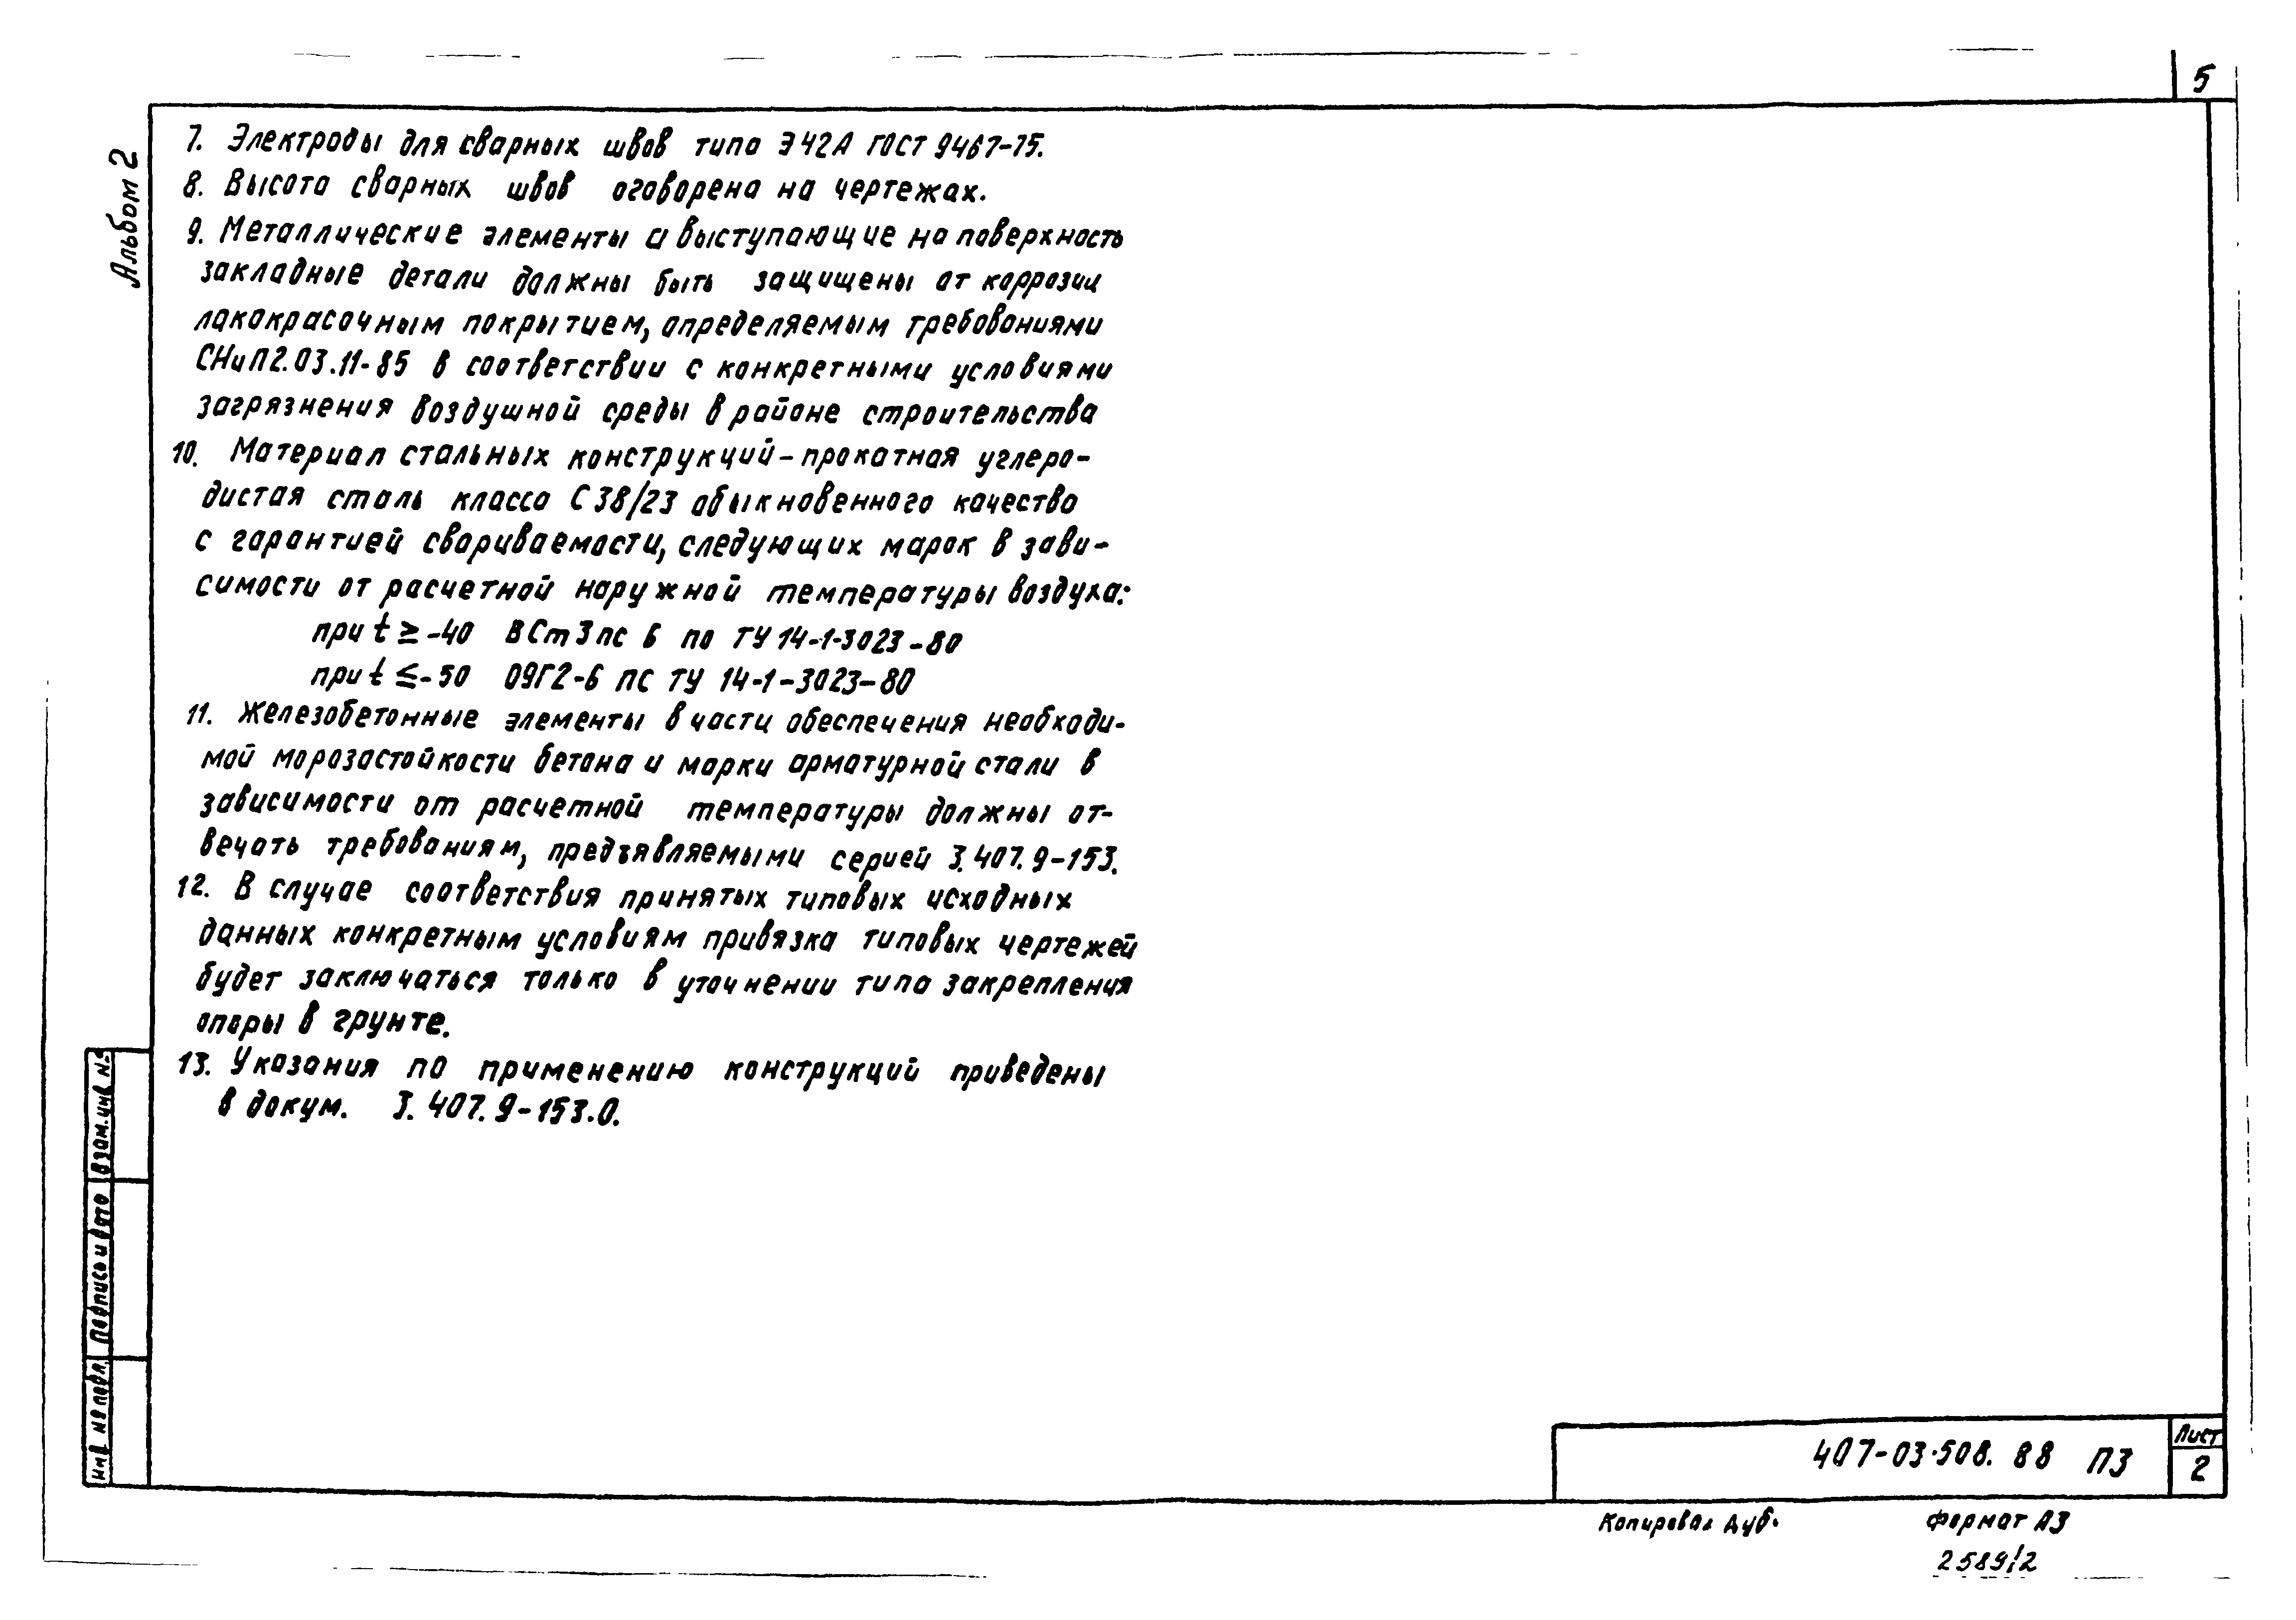 5
Альбом 2
7. Электроды для сварных швов типа Э42А ГОСТ 9467-75.
8. Высота сварных швов оговорена на чертежах.
9. Металлические элементы и выступающие на поверхность
закладные детали должны быть защищены от коррозии
лакокрасочным покрытием, определяемым требованиями
СНиП2.03.11-85 в соответствии с конкретными условиями
загрязнения воздушной среды в районе строительства
10. Материал стальных конструкций-прокатная углеро-
дистая сталь класса С38/23 обыкновенного качества
с гарантией свариваемости, следующих марок в зави-
симости от расчетной наружной температуры воздуха:
при t ≥ -40 ВСт3пс 6 по ТУ 14-1-3023-80
при t ≤ -50 09Г2-6 ПС ТУ 14-1-3023-80
11. Железобетонные элементы в части обеспечения необходи-
мой морозостойкости бетона и марки арматурной стали в
зависимости от расчетной температуры должны от-
вечать требованиям, предъявляемыми серией 3.407.9-153.
12. В случае соответствия принятых типовых исходных
данных конкретным условиям привязка типовых чертежей
будет заключаться только в уточнении типа закрепления
опоры в грунте.
13. Указания по применению конструкций приведены
в докум. 3.407.9-153.0.
Взам. инв №
Подпись и дата
Инв № подл.
407-03-508.88 ПЗ
Лист
2
Копировал Дуб.
Формат А3
2589/2